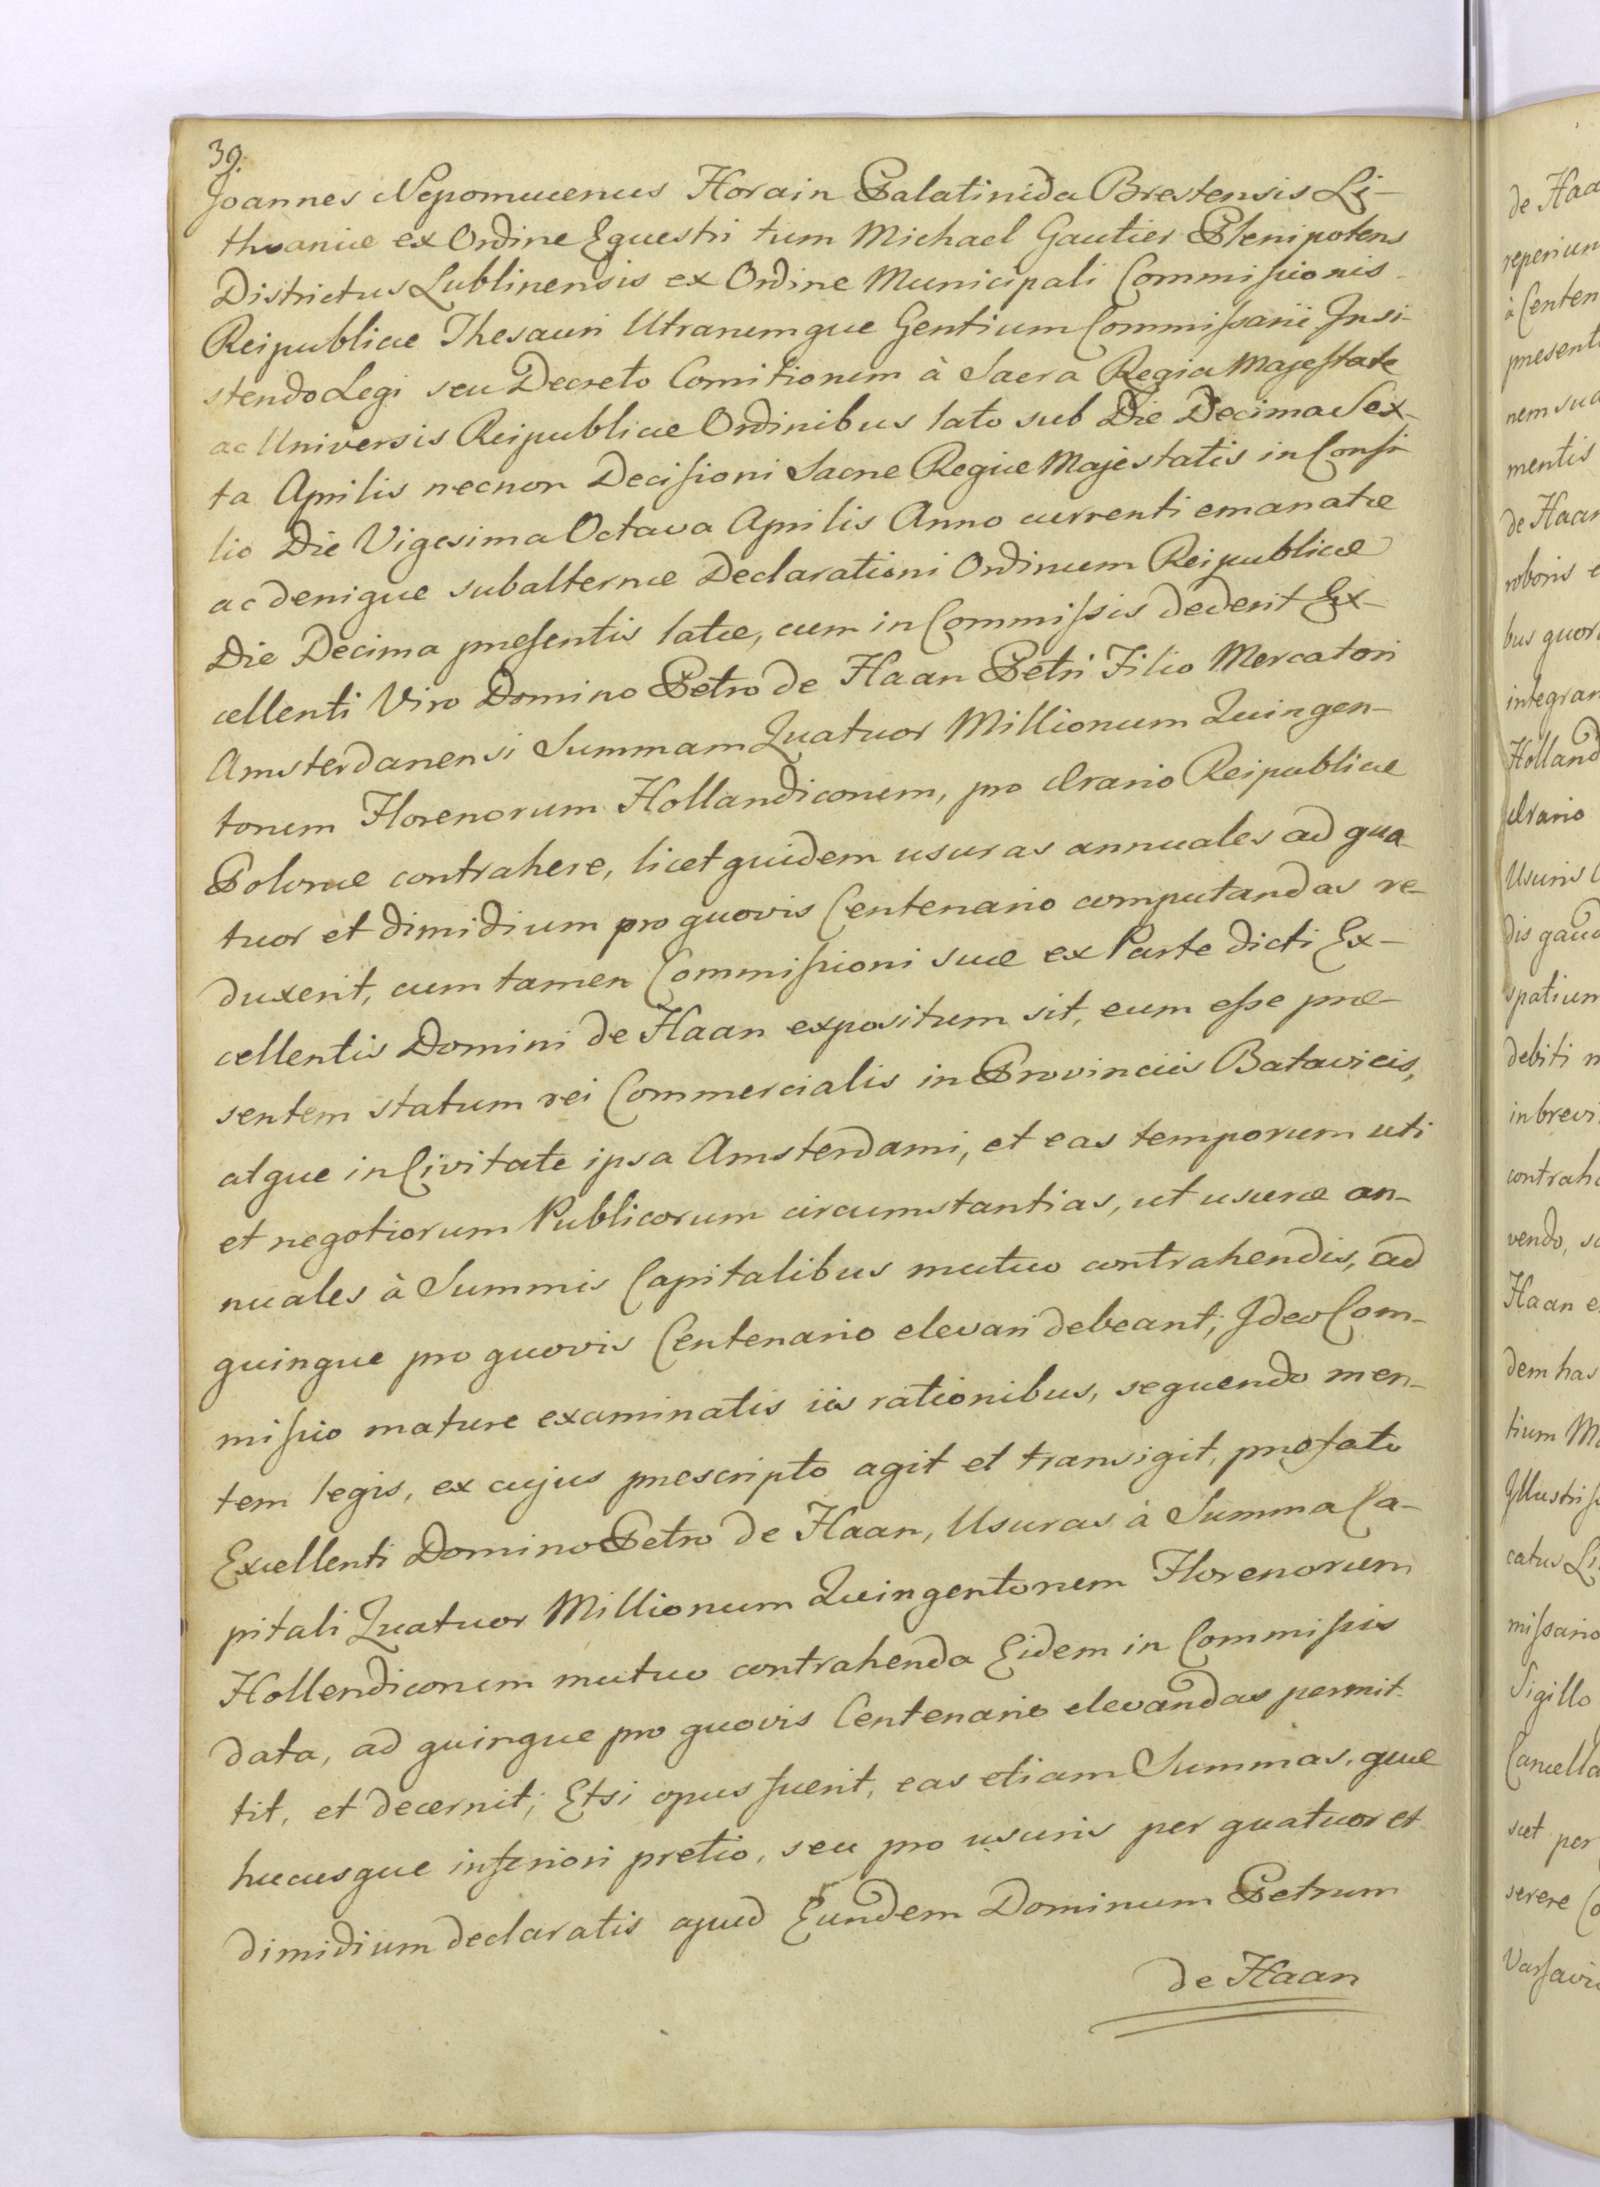 39.
Joannes Nepomucenus Horain Palatinida Brestensis Li-
thvaniæ ex Ordine Equestri tum Michael Gautier Plenipotens
Districtus Lublinensis ex Ordine Municipali Commissionis
Reipublicæ Thesauri Utrarumque Gentium Commissarii Insi-
stendo Legi seu Decreto Comitiorum à Sacra Regia Majestate
ac Universis Reipublicæ Ordinibus lato sub Die Decima Sex-
ta Aprilis necnon Decisioni Sacræ Regiæ Majestatis in Consi-
lio Die Vigesima Octava Aprilis Anno currenti emanatæ
ac denique subalternæ Declarationi Ordinum Reipublicæ
Die Decima præsentis latæ, cum in Commissis dederit Ex-
cellenti Viro Domino Petro de Haan Petri Filio Mercatori
Amsterdanensi Summam Quatuor Millionum Quingen-
torum Florenorum Hollandicorum, pro Ærario Reipublicæ
Polonæ contrahere, licet quidem usuras annuales ad qua-
tuor et dimidium pro quovis Centenario computandas re-
duxerit, cum tamen Commissioni suæ ex Parte dicti Ex-
cellentis Domini de Haan expositum sit, eum esse præ-
sentem statum rei Commercialis in Provinciis Batavicis,
atque in Civitate ipsa Amsterdami, et eas temporum uti
et negotiorum Publicorum circumstantias, ut usuræ an-
nuales à Summis Capitalibus mutuo contrahendis, ad
quinque pro quovis Centenario elevari debeant; Ideo Com-
missio mature examinatis iis rationibus, sequendo men-
tem legis, ex cujus præscripto agit et transigit, præfato
Excellenti Domino Petro de Haan, Usuras à Summa Ca-
pitali Quatuor Millionum Quingentorum Florenorum
Hollendicorum mutuo contrahenda Eidem in Commissis
data, ad quinque pro quovis Centenario elevandas permit-
tit, et decernit; Etsi opus fuerit, eas etiam Summas, quæ
hucusque inferiori pretio, seu pro usuris per quatuor et
dimidium declaratis apud Eundem Dominum Petrum
de Haan
de Haa
reperiun
à Centen
præsent
nem sua
mentis
de Haan
roboris e
bus quor
integran
Holland
Ærario
Usuris
dis gaud
spatium
debiti
in brevi
contrah
vendo, s
Haan e
dem has
tium M
Illustris
catus Li
missario
Sigillo
Cancella
set per
serere Co
Varsavi